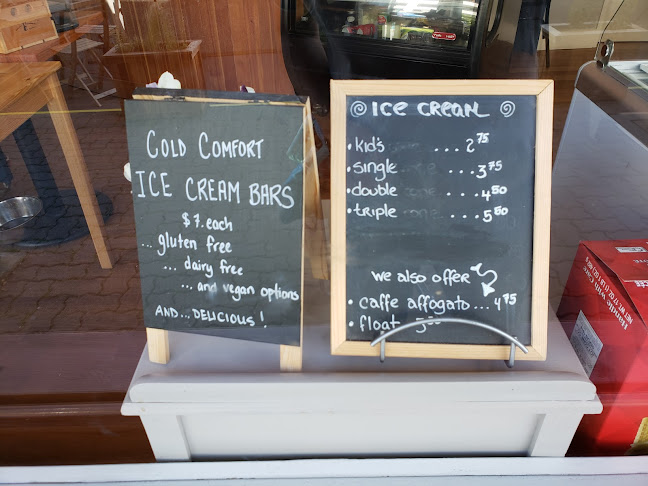 COLD COMFORT
ICE CREAM BARS
$7. each
... gluten free
... dairy free
... and vegan options
AND... DELICIOUS!
ICE CREAM
• kid's ... 2 75
• single ... 3 75
• double ... 4 50
• triple ... 5 50
we also offer
• caffe affogato ... 4 75
• float
Handle with care